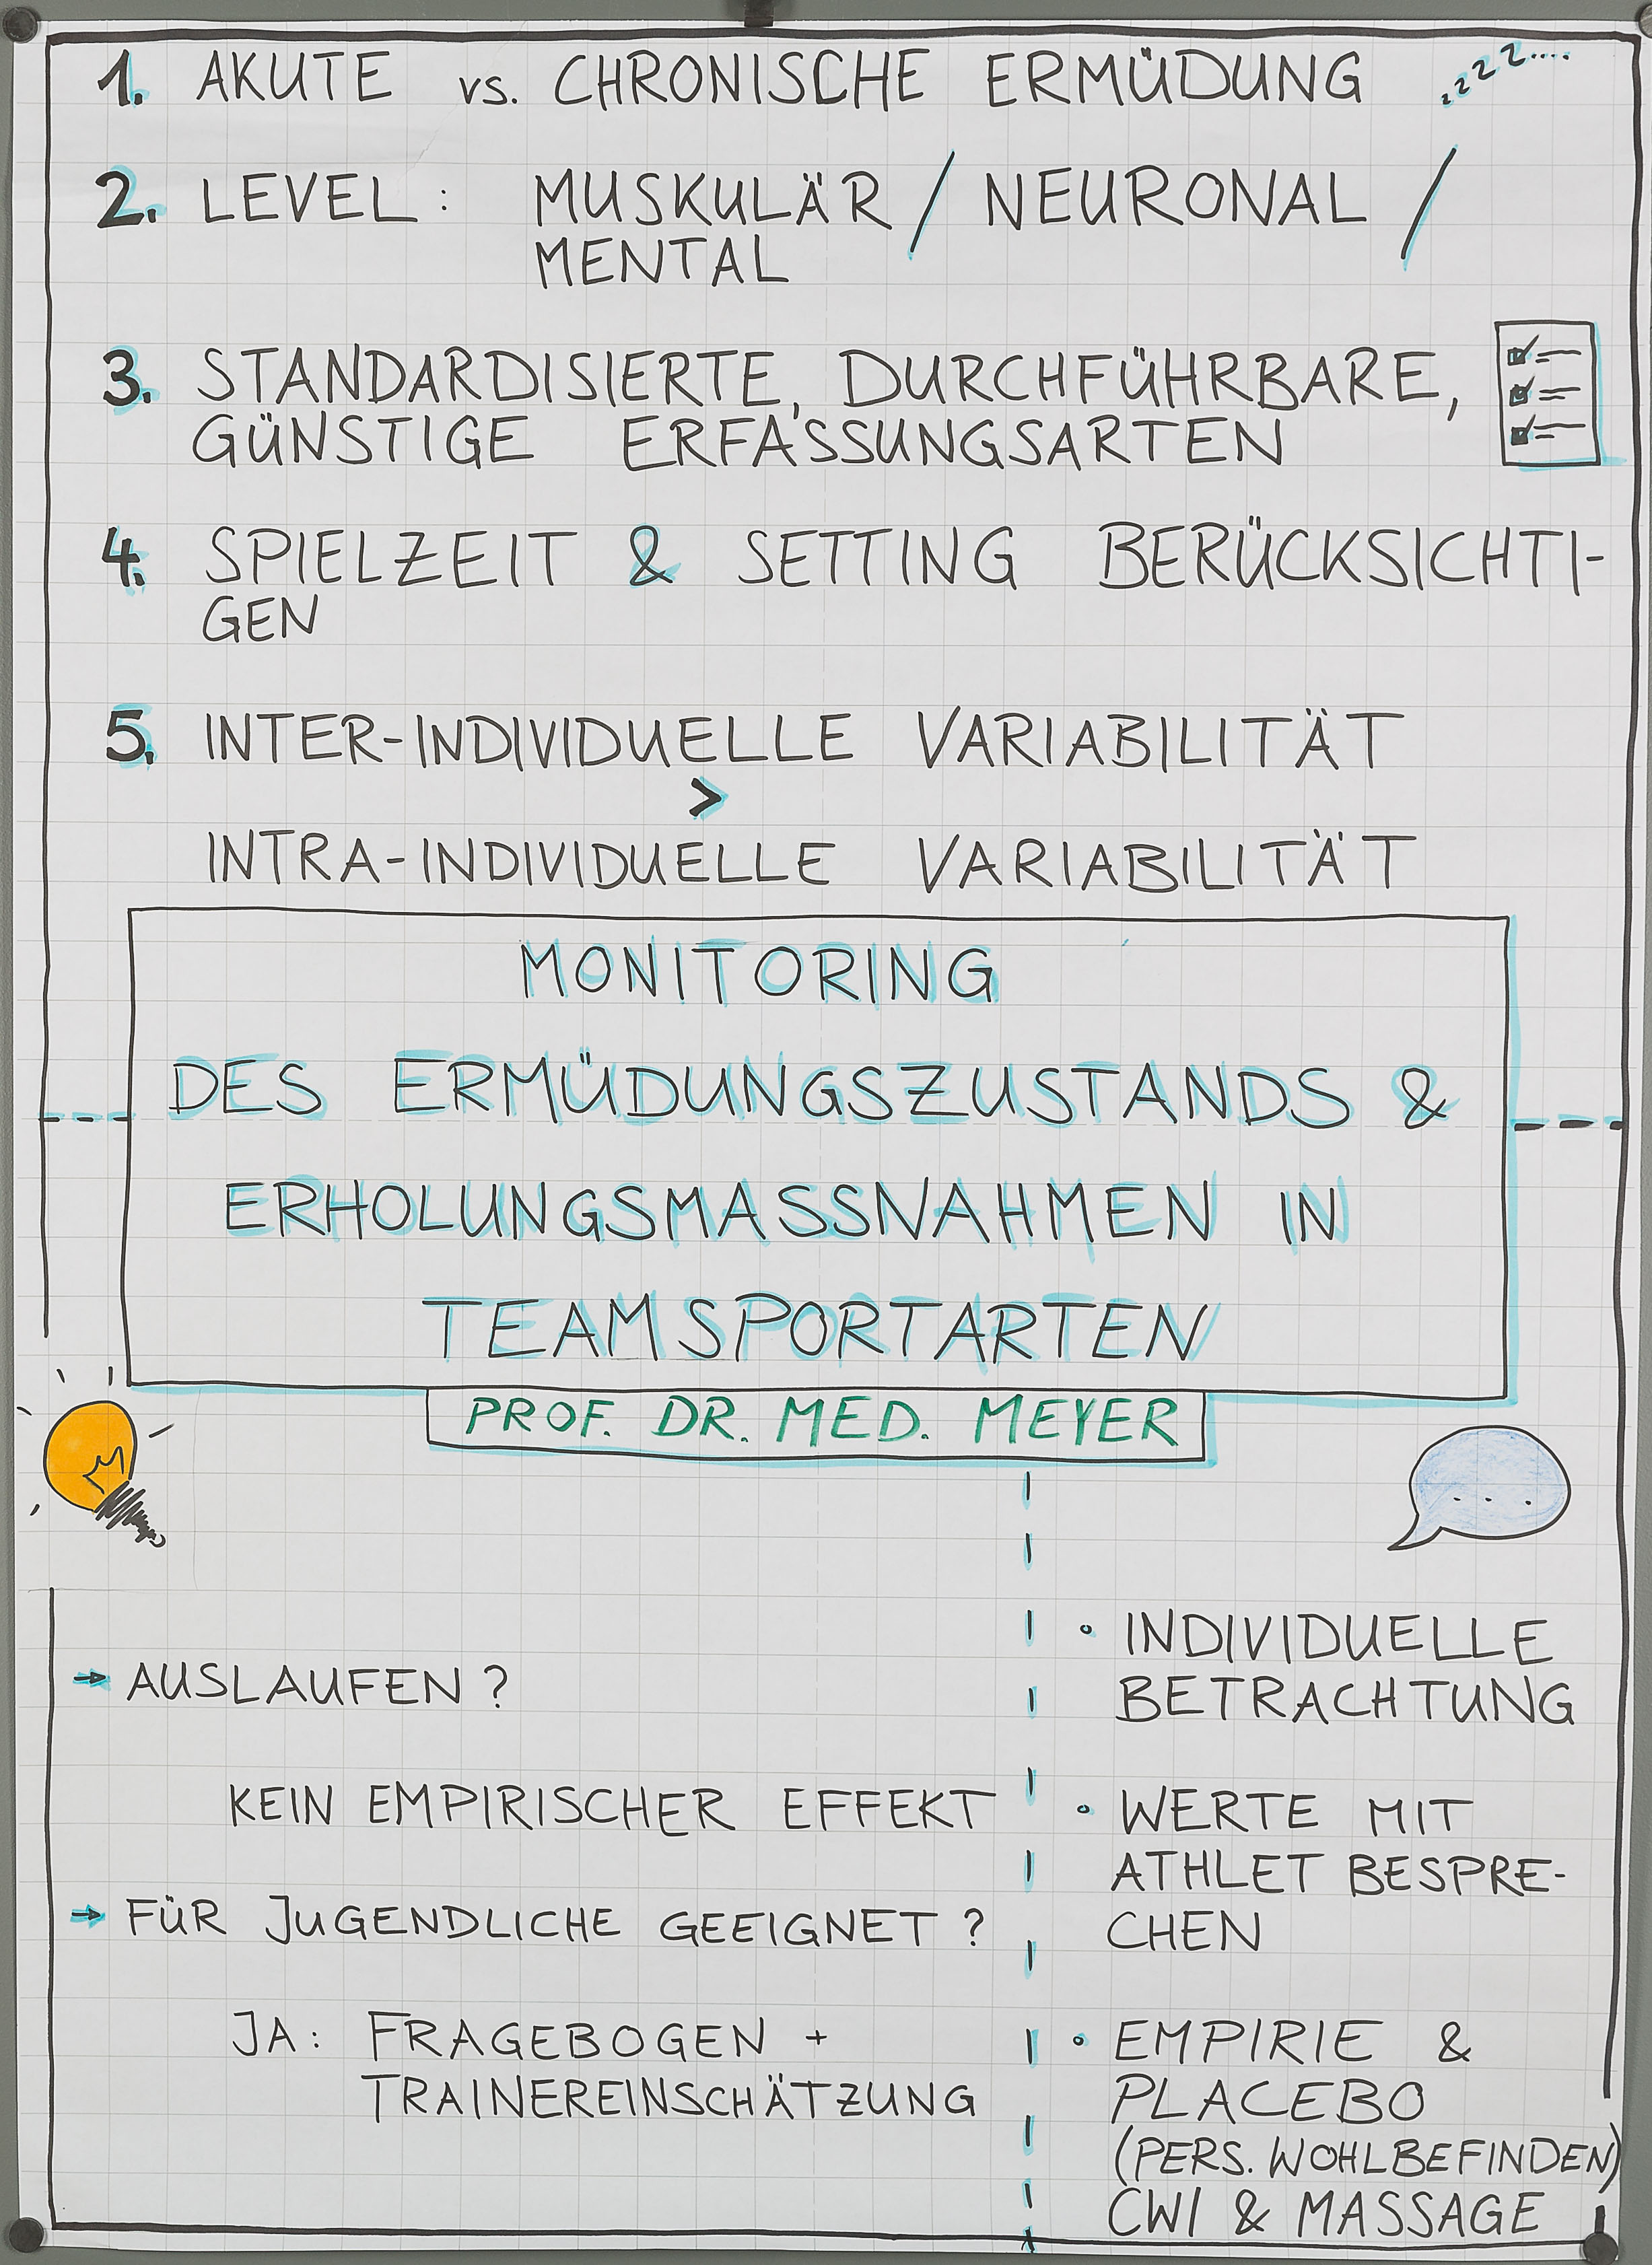 1. AKUTE vs. CHRONISCHE ERMÜDUNG zzzz....
2. LEVEL: MUSKULÄR / NEURONAL /
MENTAL
3. STANDARDISIERTE, DURCHFÜHRBARE,
GÜNSTIGE ERFASSUNGSARTEN
4. SPIELZEIT & SETTING BERÜCKSICHTI-
GEN
5. INTER-INDIVIDUELLE VARIABILITÄT
>
INTRA-INDIVIDUELLE VARIABILITÄT
MONITORING
DES ERMÜDUNGSZUSTANDS &
ERHOLUNGSMASSNAHMEN IN
TEAMSPORTARTEN
PROF. DR. MED. MEYER
→ AUSLAUFEN?
KEIN EMPIRISCHER EFFEKT
→ FÜR JUGENDLICHE GEEIGNET?
JA: FRAGEBOGEN +
TRAINEREINSCHÄTZUNG
...
• INDIVIDUELLE
BETRACHTUNG
• WERTE MIT
ATHLET BESPRE-
CHEN
• EMPIRIE &
PLACEBO
(PERS. WOHLBEFINDEN)
CWI & MASSAGE